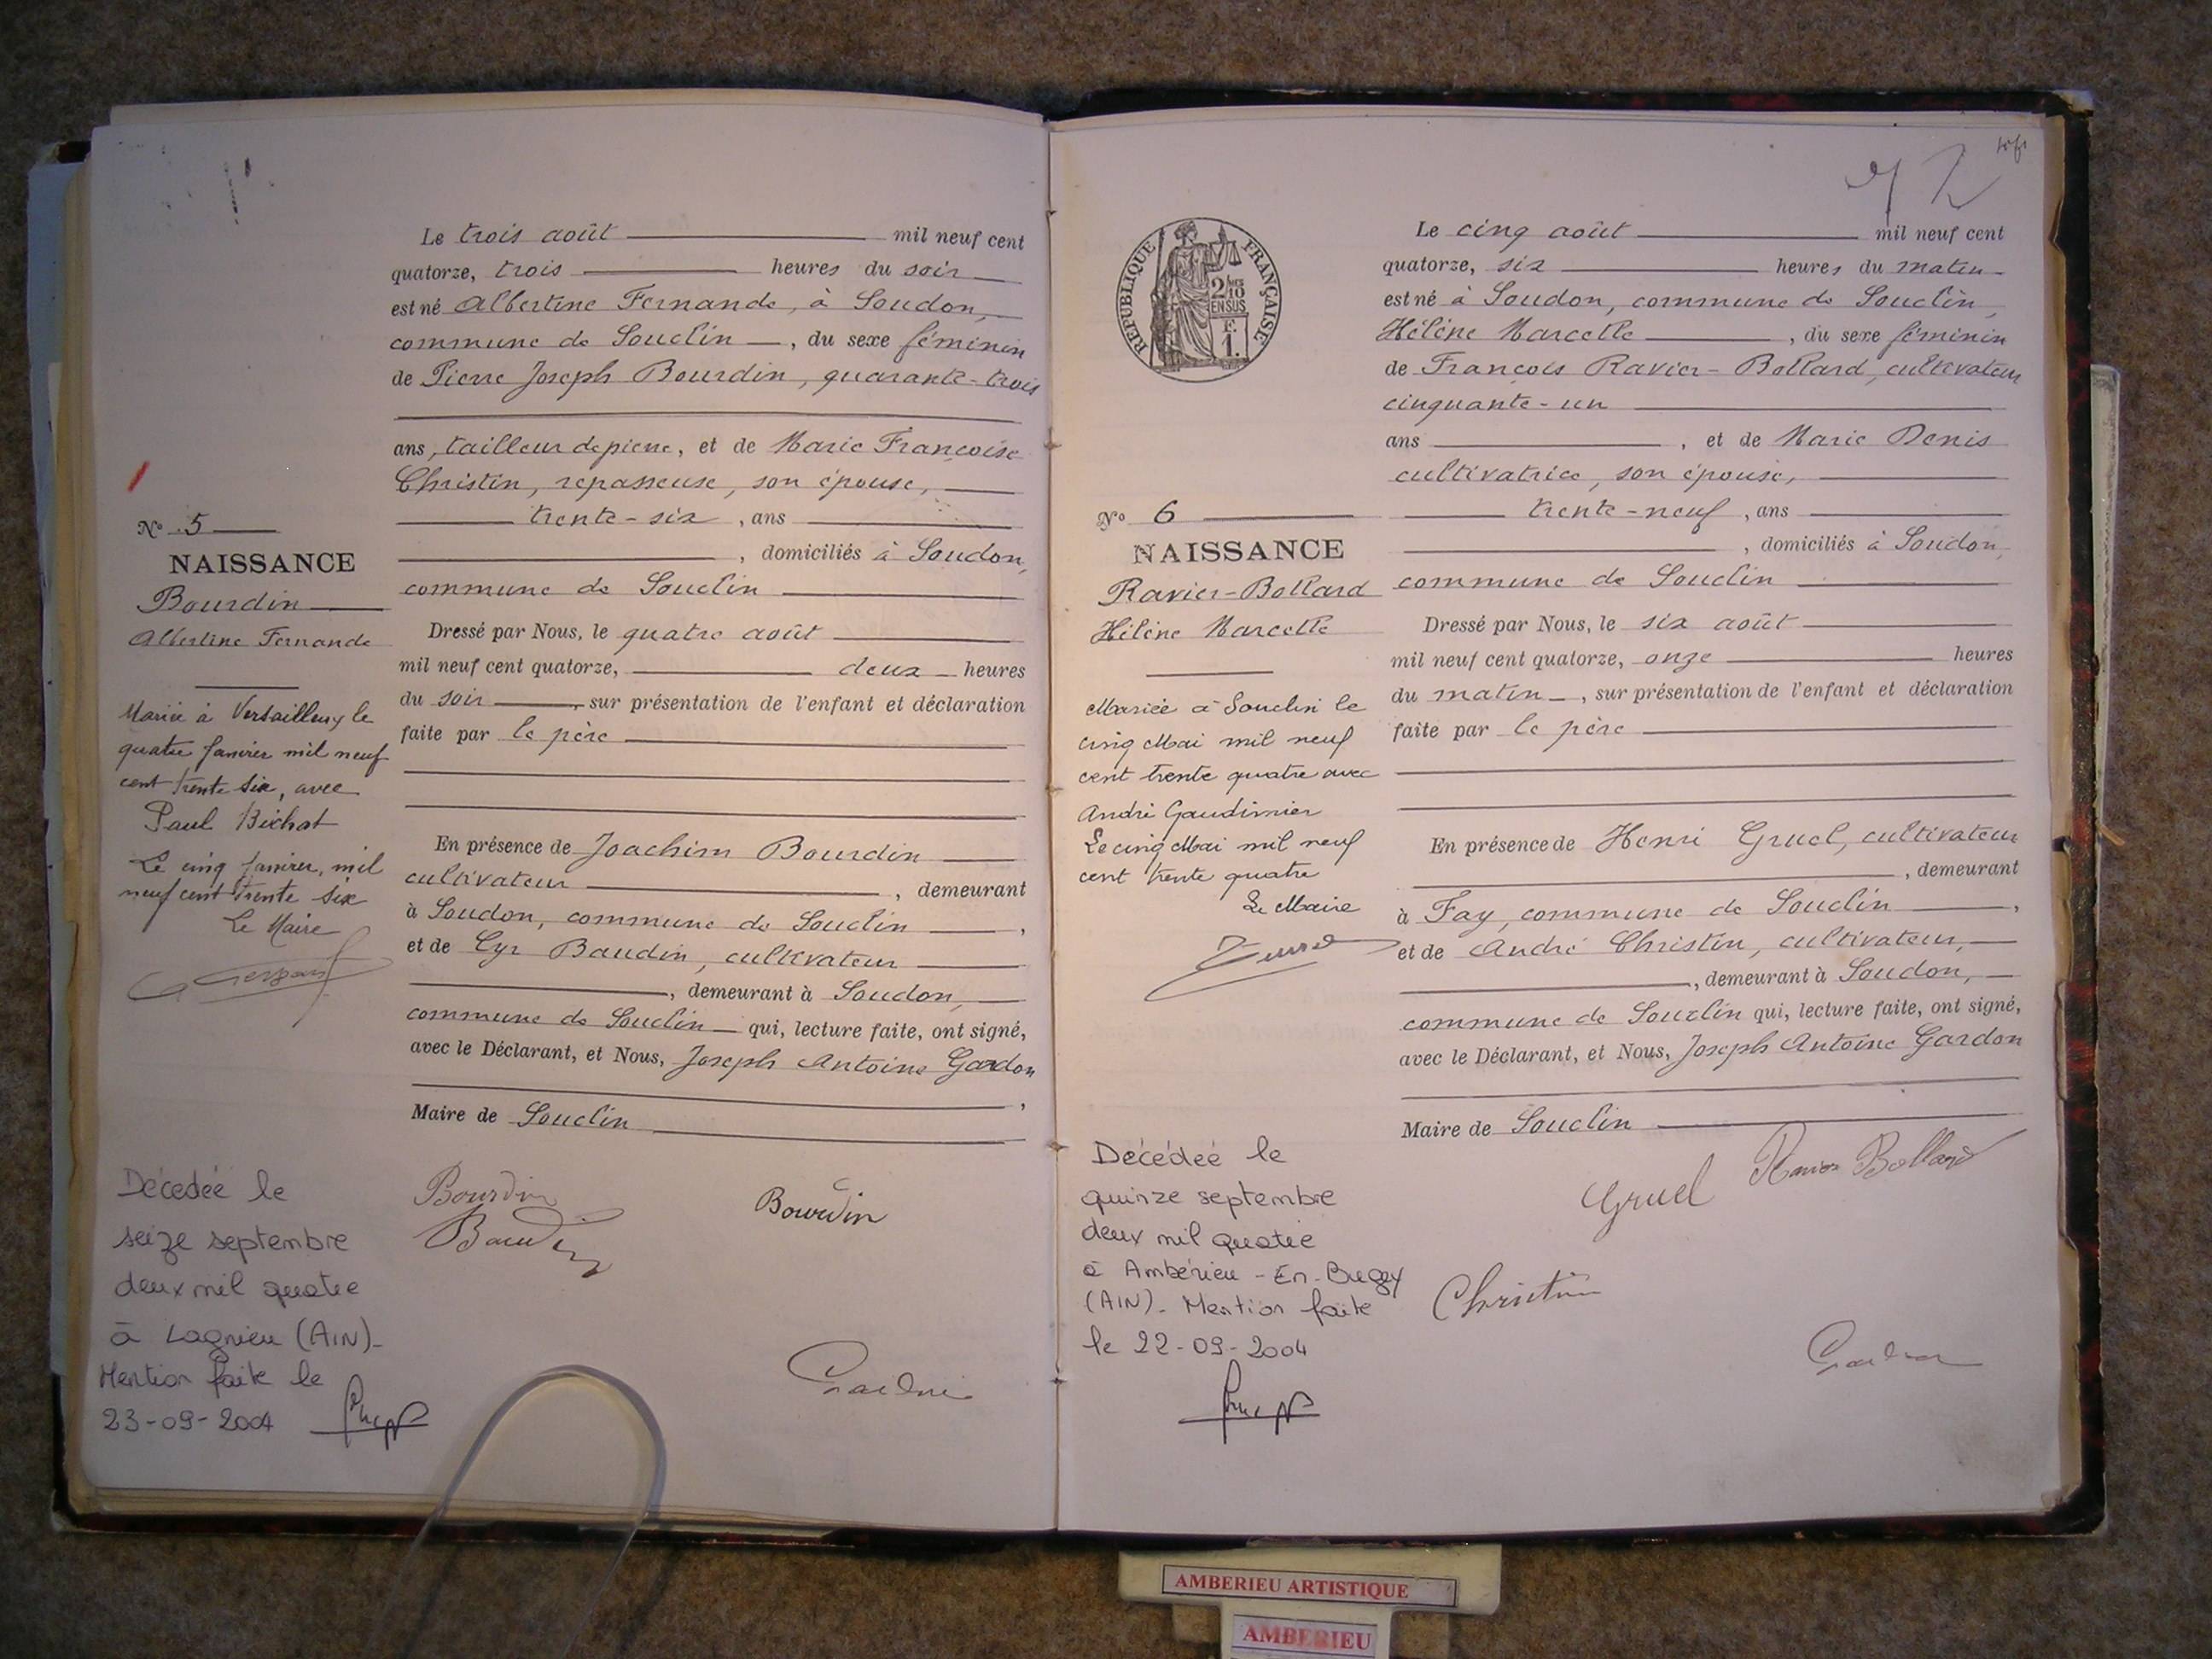 Le trois août mil neuf cent
quatorze, trois heures du soir
est né Albertine Fernande, à Soudon,
commune de Souclin, du sexe féminin
de Pierre Joseph Bourdin, quarante-trois
ans, tailleur de pierre, et de Marie Françoise
Christin, repasseuse, son épouse,
trente-six, ans
, domiciliés à Soudon,
commune de Souclin
Dressé par Nous, le quatre août
mil neuf cent quatorze, deux heures
du soir, sur présentation de l'enfant et déclaration
faite par le père
En présence de Joachim Bourdin
cultivateur, demeurant
à Soudon, commune de Souclin,
et de Cyr Baudin, cultivateur
, demeurant à Soudon,
commune de Souclin qui, lecture faite, ont signé,
avec le Déclarant, et Nous, Joseph Antoine Gardon
,
Maire de Souclin
Bourdin
Bourdin
Baudin
N° 5
NAISSANCE
Bourdin
Albertine Fernande
Mariée à Versailleux le
quatre Janvier mil neuf
cent trente six, avec
Paul Bichat
Le cinq Janvier, mil
neuf cent trente six
Le Maire
Décédée le
seize septembre
deux mil quatre
à Lagnieu (AIN)-
Mention faite le
23-09-2004
RÉPUBLIQUE FRANÇAISE
2/10 MES
EN SUS
F.
1.
Le cinq août mil neuf cent
quatorze, six heures du matin
est né à Soudon, commune de Souclin,
Hélène Marcelle, du sexe féminin
de François Ravier-Bollard, cultivateur
cinquante-un
ans, et de Marie Denis
cultivatrice, son épouse,
trente-neuf, ans
, domiciliés à Soudon,
commune de Souclin
Dressé par Nous, le six août
mil neuf cent quatorze, onze heures
du matin, sur présentation de l'enfant et déclaration
faite par le père
En présence de Henri Gruel, cultivateur
, demeurant
à Fay, commune de Souclin,
et de André Christin, cultivateur,
, demeurant à Soudon,
commune de Souclin qui, lecture faite, ont signé,
avec le Déclarant, et Nous, Joseph Antoine Gardon
Maire de Souclin
Ravier Bollard
Gruel
Christin
N° 6
NAISSANCE
Ravier-Bollard
Hélène Marcelle
Mariée à Souclin le
cinq Mai mil neuf
cent trente quatre avec
André Gaudimier
Le cinq Mai mil neuf
cent trente quatre
Le Maire
Décédée le
quinze septembre
deux mil quatre
à Ambérieu-En-Bugey
(AIN)- Mention faite
le 22-09-2004
AMBERIEU ARTISTIQUE
AMBERIEU